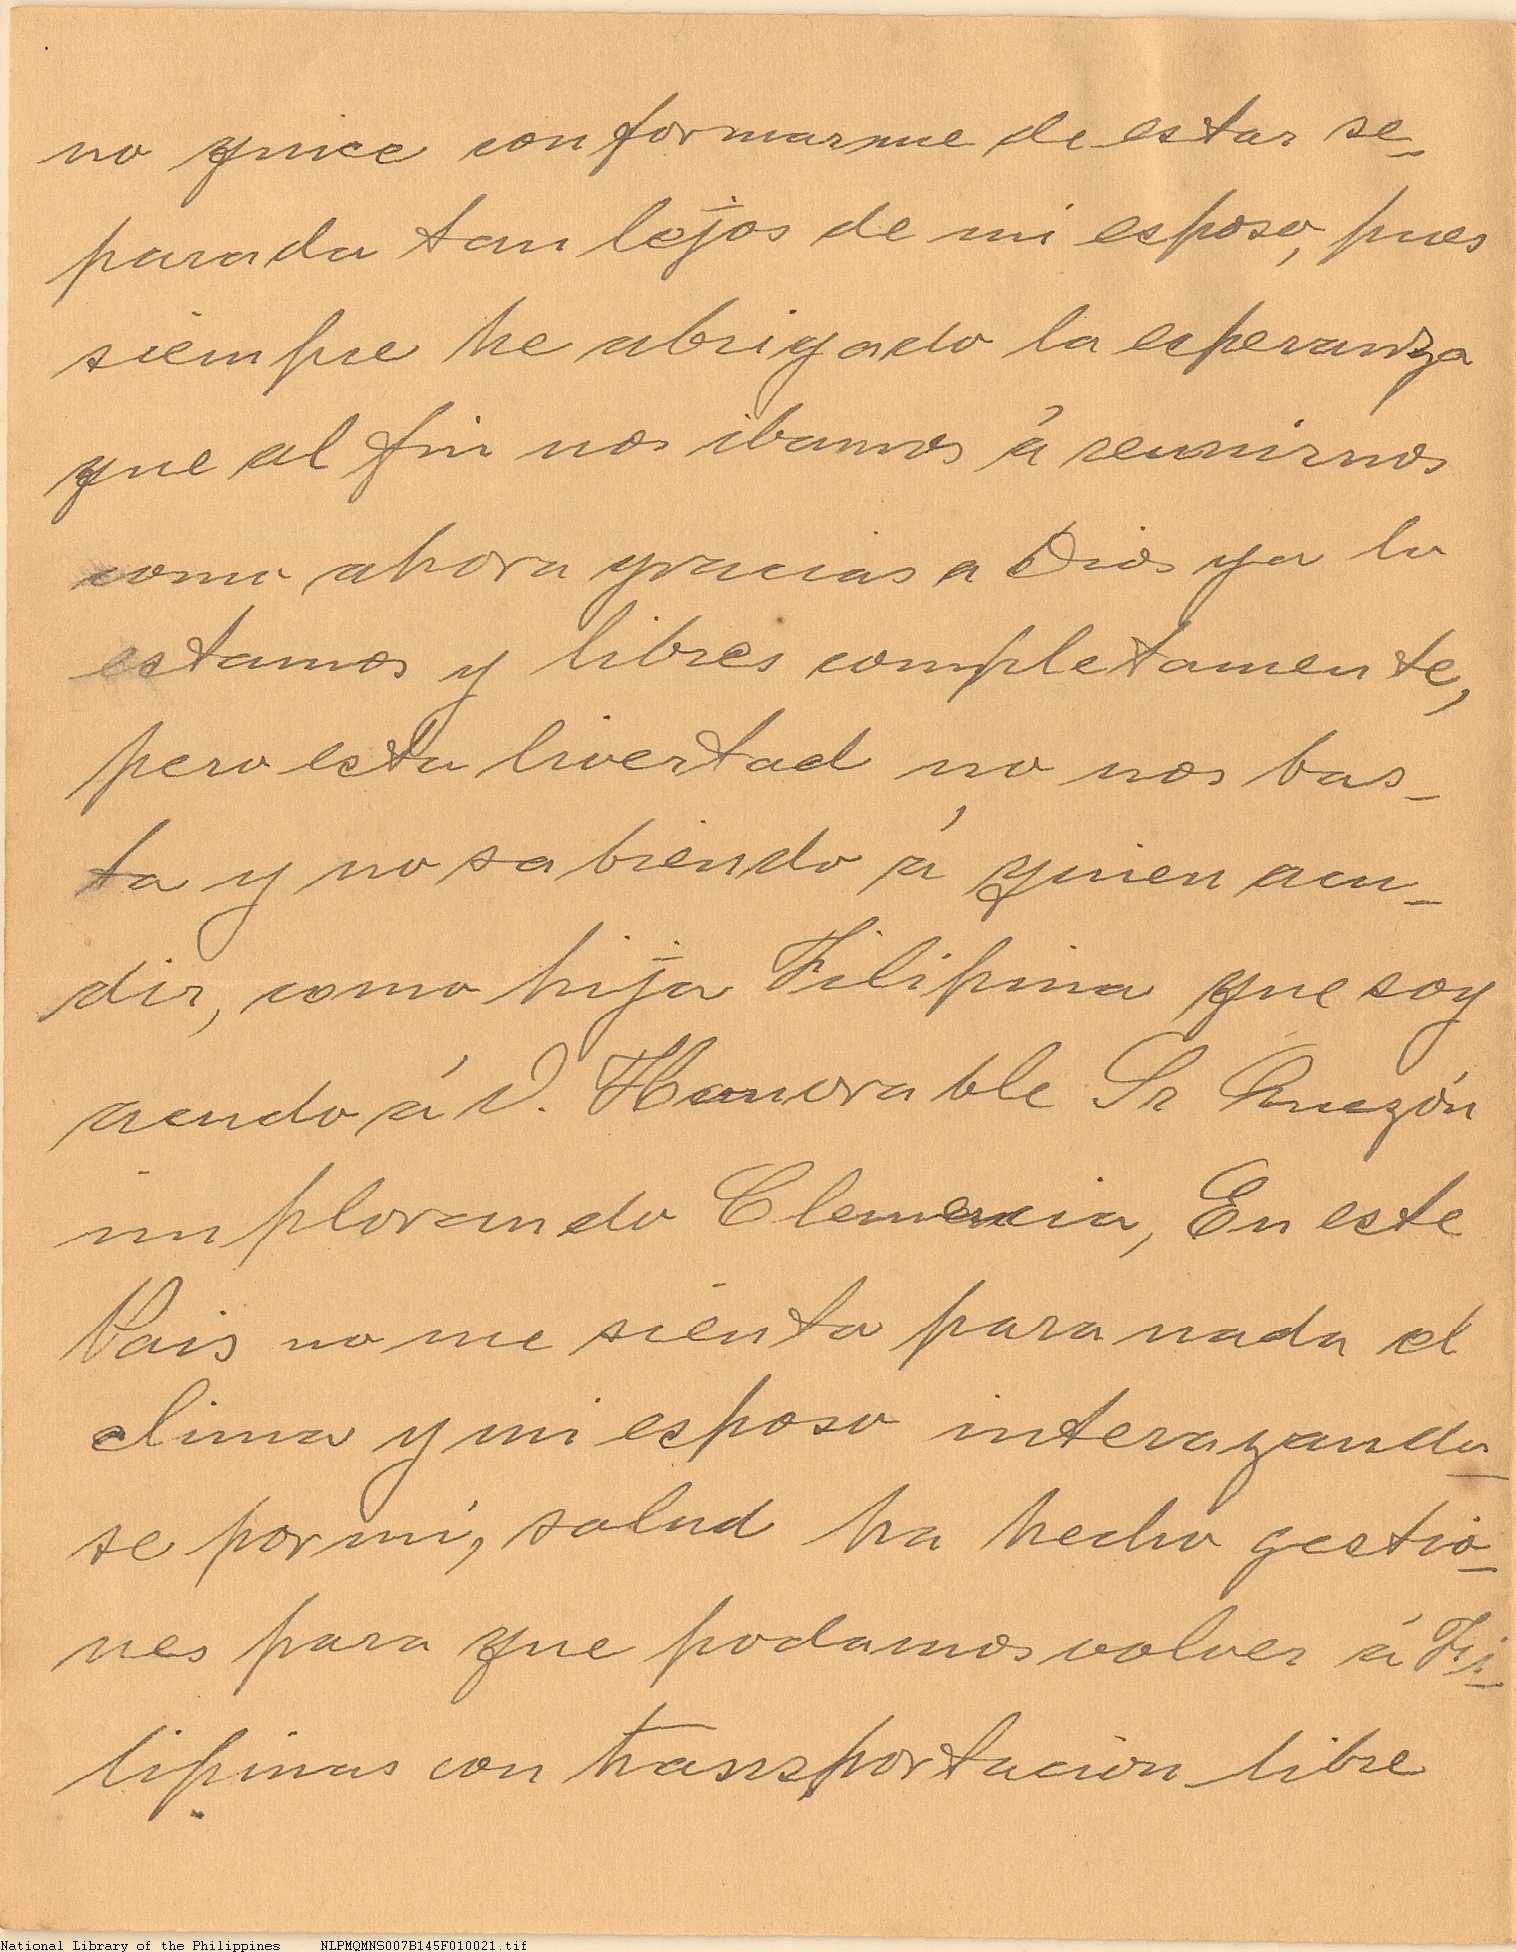 no quice conformarme de estar se-
parada tan lejos de mi esposo, pues
siempre he abrigado la esperanza
que al fin nos ibamos á reunirnos
como ahora gracias a Dios ya lo
estamos y libres completamente,
pero esta livertad no nos bas-
ta y no sabiendo á quien acu-
dir, como hija Filipina que soy
acudo á V. Honorable Sr Quezón
implorando Clemencia, En este
Pais no me sienta para nada el
clima y mi esposo interazando-
se por mi, salud ha hecho gestio-
nes para que podamos volver á Fi-
lipinas con transportacion libre
National Library of the Philippines NLPMQMNS007B145F010021.tif